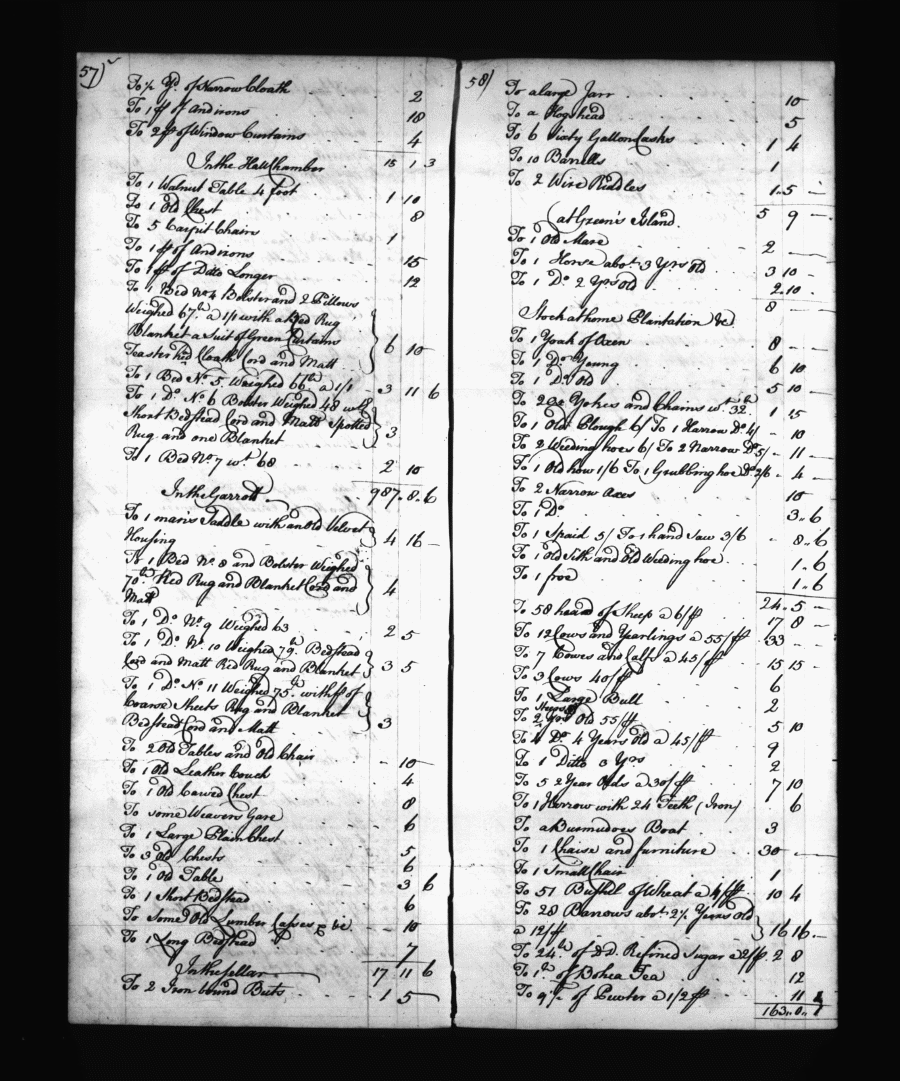 57)
To ½ Yd. of Narrow Cloath 2
To 1 pr of Andirons 18
To 2 pr of Window Curtains 4
In the Hall Chamber 15 1 3
To 1 Walnut Table 4 foot 1 10
To 1 Old Chest 8
To 5 Carpit Chairs 1
To 1 pr of Andirons 15
To 1 pr of Ditto Longer 12
To 1 Bed No 4 Bolster and 2 Pillows
Weighed 67 lb a 1/1 with a Red Rug
Blanket a Suit of Green Curtains
Teaster hed Cloath Cord and Matt 6 10
To 1 Bed No. 5. Weighed 66 lb a 1/1 3 11 6
To 1 Do. No 6 Bolster Weighed 48 wth
Short Bedstead Cord and Matt Spotted
Rug and one Blanket 3
To 1 Bed No 7 wt. 68 2 10
987.8.6
In the Garrott
To 1 man's Saddle with an Old Velvet
Housing 4 16 —
To 1 Bed No. 8 and Bolster Weighed
70 lb Red Rug and Blanket Cord and
Matt 4
To 1 Do. No 9 Weighed 63 2 5
To 1 Do. No. 10 Weighed 79 lb. Bedstead
Cord and Matt Red Rug and Blanket 3 5
To 1 Do. No 11 Weighed 75 lb. with pr of
Coarse Sheets Rug and Blanket
Bedstead Cord and Matt 3
To 2 Old Tables and Old Chair 10
To 1 Old Leather Couch 4
To 1 Old Carved Chest 8
To some Weavers Gare 6
To 1 Large Plain Chest 5
To 3 Old Chests 6
To 1 Old Table 3 6
To 1 Short Bedstead 6
To Some Old Lumber &c. 10
To 1 Long Bedstead 7
In the Cellar 17 11 6
To 2 Iron bound Buts 1 5
58)
To a large Jarr 10
To a Hogshead 5
To 6 Sixty Gallon Casks 1 4
To 10 Barrells 1
To 2 Wire Riddles 1.5 —
5 9 —
(at Green's Island
To 1 Old Mare 2 —
To 1 Horse abot. 3 Yrs Old 3 10 —
To 1 Do. 2 Yrs Old 2.10
8 —
Stock at home Plantation &c
To 1 Yoak of Oxen 8 —
To 1 Do Young 6 10
To 1 Do. Old 5 10
To 2 Ox Yokes and Chains wt. 32 lb 1 15
To 1 Old Plough 6/ To 1 Harrow Do. 4/ 10
To 2 Weeding hoes 6/ To 2 Narrow Do 5/ 11 —
To 1 Old how 1/6 To 1 Grubbing hoe Do 2/6 4
To 2 Narrow Axes 10
To 1 Do 3..6
To 1 Spaid 5/ To 1 hand Saw 3/6 8..6
To 1 Old Sith and Old Weeding hoe 1..6
To 1 froe 1..6
24..5 —
To 58 head of Sheep a 6/ pr 17 8 —
To 12 Cows and Yearlings a 55/ pr 33
To 7 Cowes and Calfs a 45/ pr 15 15 —
To 3 Cows 40/ pr 6
To 1 Large Bull 2
Steers
To 2 Yrs Old 55/ pr 5 10
To 4 Do. 4 Years Old a 45/ pr 9
To 1 Ditto 3 Yrs 2
To 5 2 Year Olds a 30/ pr 7 10
To 1 Harrow with 24 Teeth (Iron) 6
To a Burmudoes Boat 3
To 1 Chaise and furniture 30 —
To 1 Small Chair 1
To 51 Bushel of Wheat a 4/ pr 10 4
To 28 Barrows abot. 2½ Years Old
a 12/ pr 16 16. —
To 24 lb of DD. Refined Sugar a 2/ pr 2 8
To 1 lb of Bohea Tea 12
To 9½ of Pewter a 1/2 pr 11 1
163..0..1